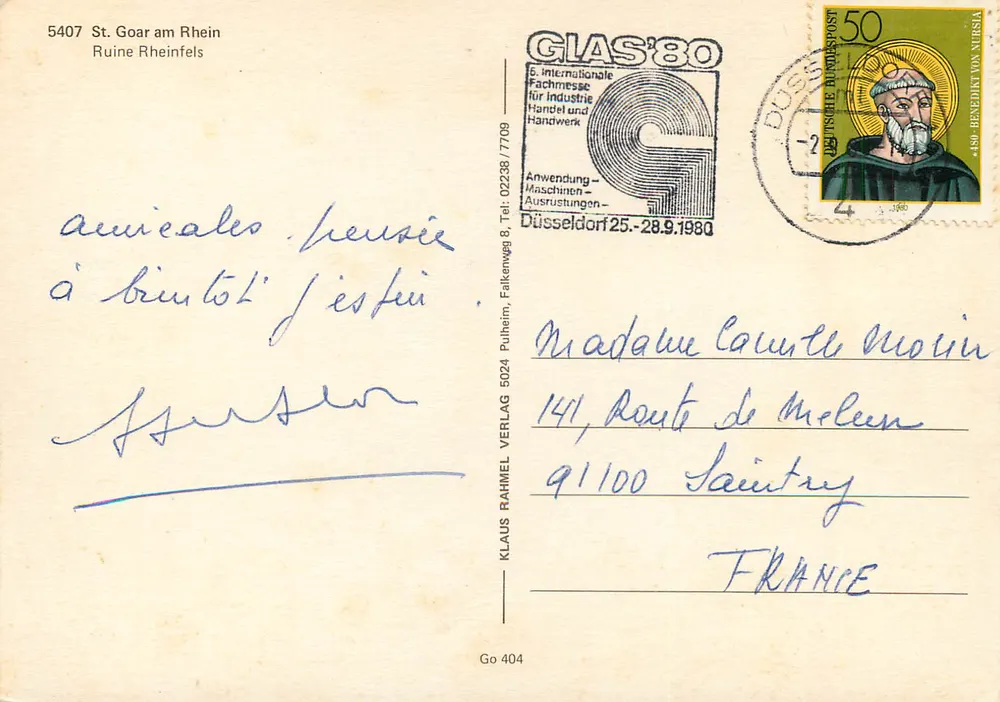 5407 St. Goar am Rhein
Ruine Rheinfels
amicales pensée
à bientôt j'espèr
GLAS'80
5. Internationale
Fachmesse
für Industrie
Handel und
Handwerk
Anwendung-
Maschinen-
Ausrüstungen-
Düsseldorf 25.-28.9.1980
DÜSSELDORF
4
50
DEUTSCHE BUNDESPOST
*480 · BENEDIKT VON NURSIA
1980
Madame Camille Morin
141, Route de Melun
91100 Saintry
FRANCE
KLAUS RAHMEL VERLAG 5024 Pulheim, Falkenweg 8, Tel: 02238/7709
Go 404